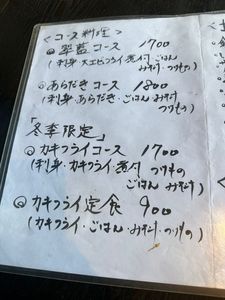 <コース料理>
コース 1700
(刺身・大エビフライ・煮付・ごはん
みそ汁・つけもの)
あらだきコース 1800
(刺身・あらだき・ごはん・みそ汁
つけもの)
「冬季限定」
カキフライコース 1700
(刺身・カキフライ・煮付 つけもの
ごはん みそ汁)
カキフライ定食 900
(カキフライ・ごはん・みそ汁・つけもの)